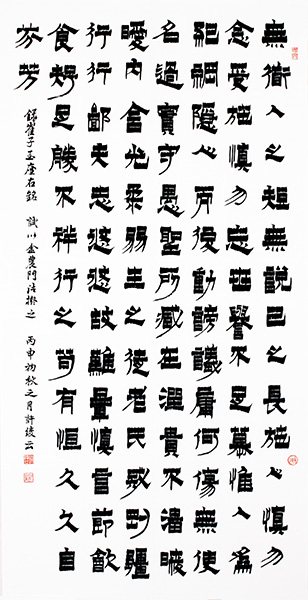 無衜人之短無說己之長施人慎勿
念受施慎勿忘世譽不足慕惟人為
紀綱隱心而後動謗議庸何傷無使
名過實守愚聖所臧在涅貴不淄曖
曖內含光柔弱生之徒老氏誡剛彊
行行鄙夫志悠悠故難量慎言節飲
食知足勝不祥行之苟有恆久久自
芬芳
錄崔子玉座右銘 試以金農門法擬之 丙申初秋之月許云